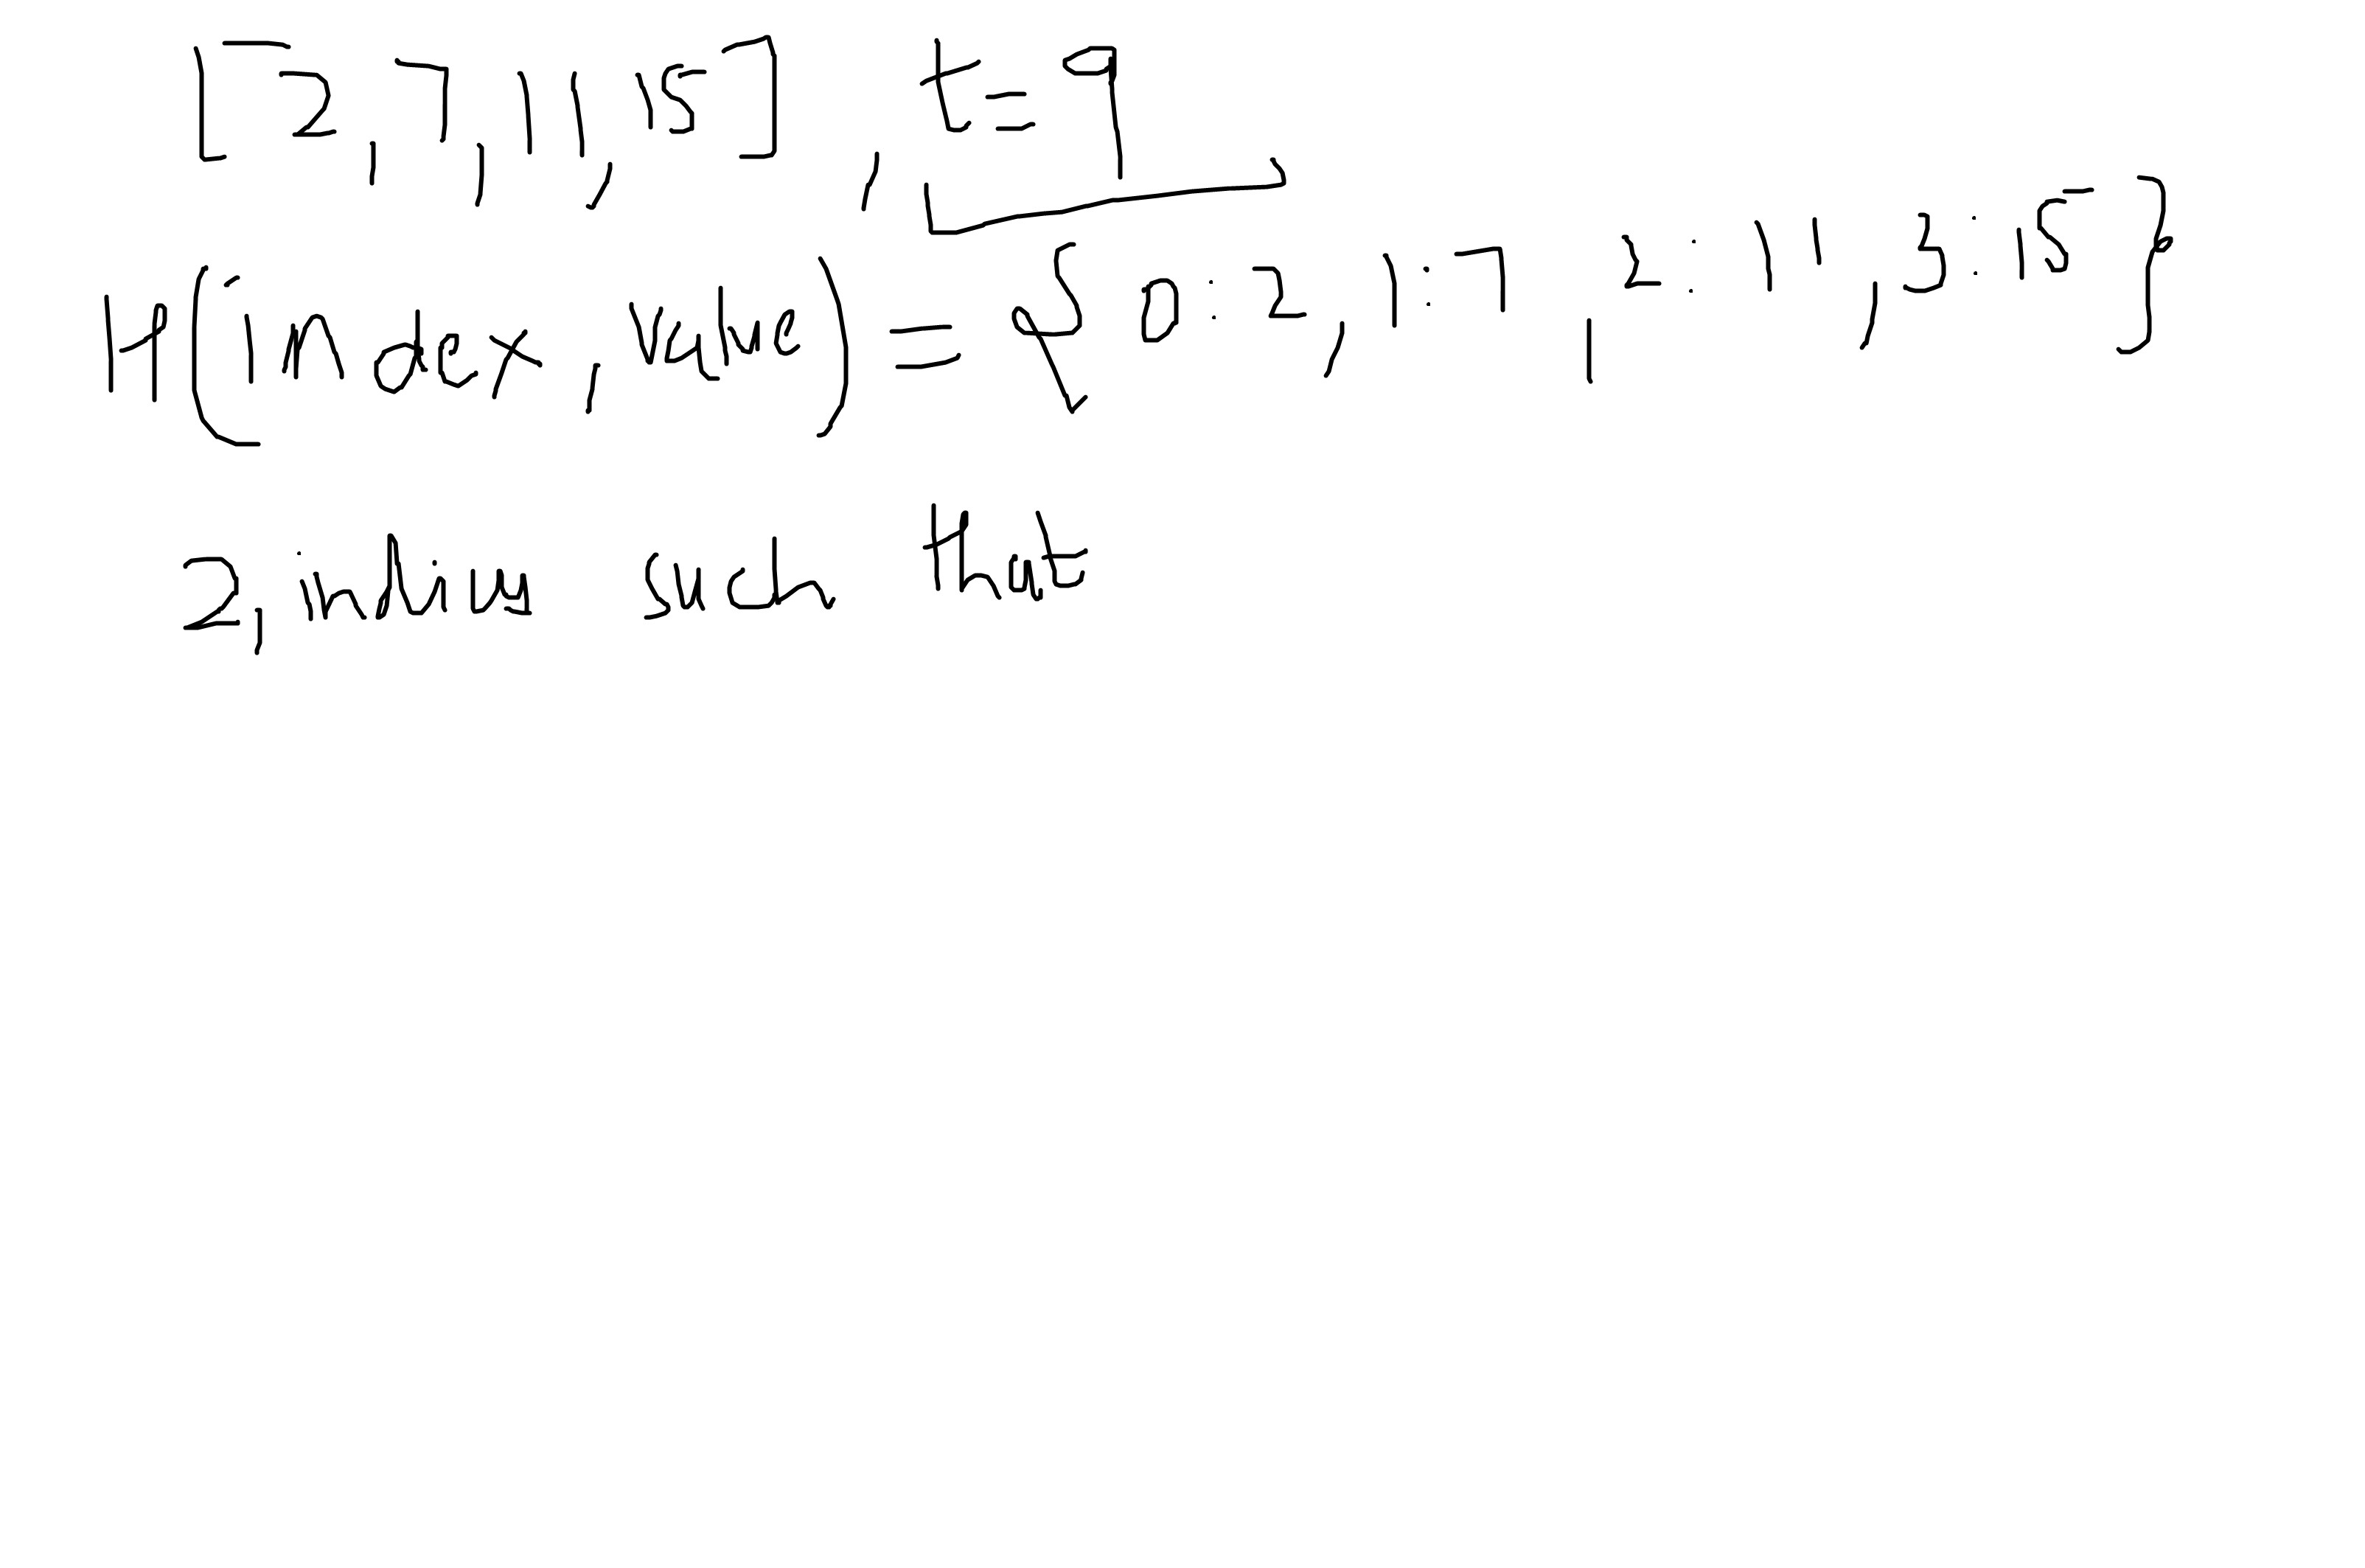 [2, 7, 11, 15], t = 9
H(index, value) = { 0:2, 1:7, 2:11, 3:15 }
2, indices such that